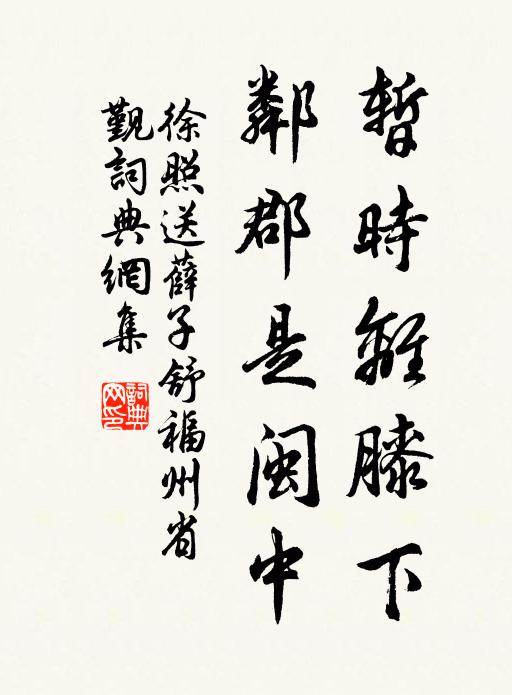 暫時離膝下
鄰郡是閩中
徐照送薛子舒福州省
觀詞典網集
詞典網印